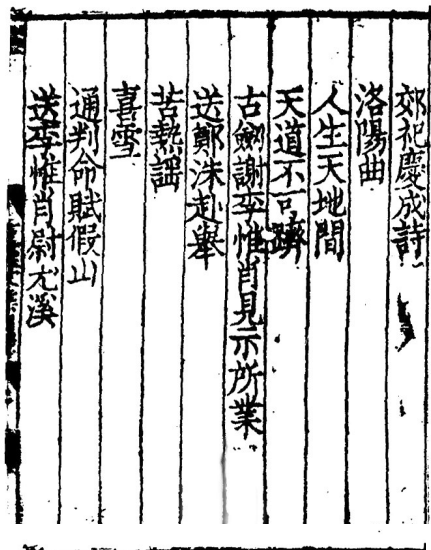 郊祀慶成詩
洛陽曲
人生天地間
天道不可躋
古劒謝李惟肖見示所業
送鄭洙赴舉
苦熱謡
喜雪
通判命賦假山
送李惟肖尉尤溪